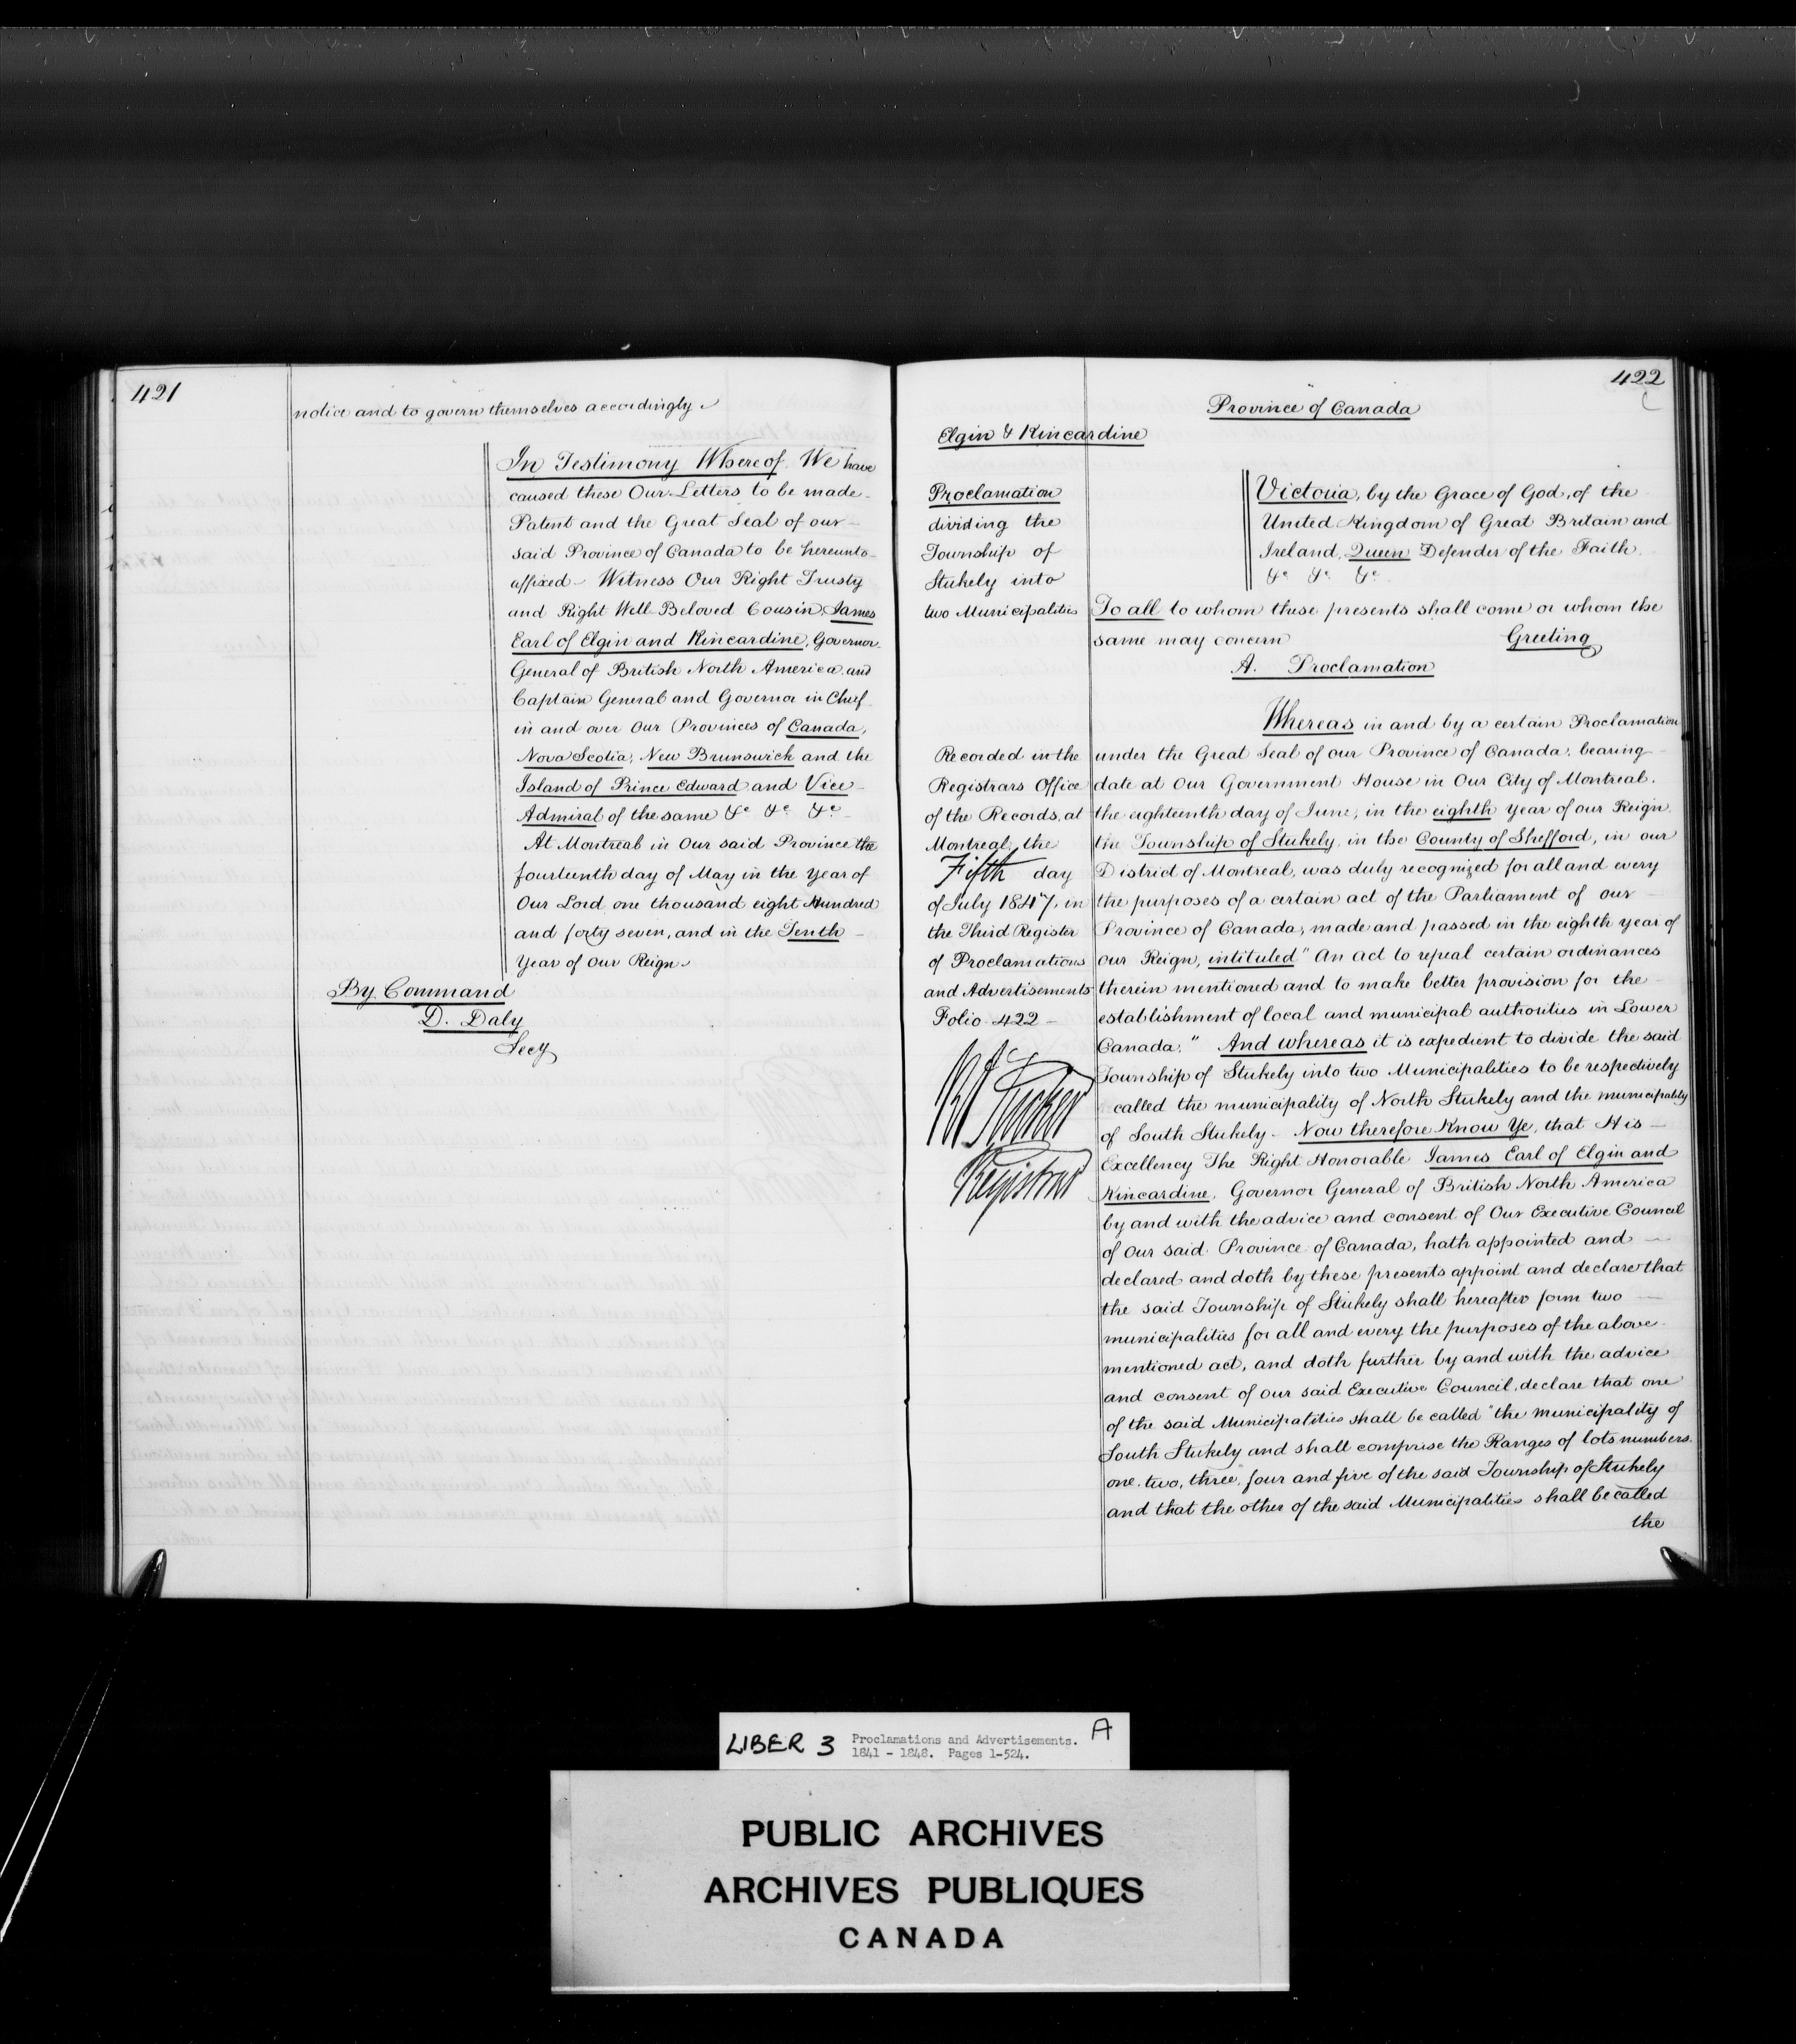 421
notice and to govern themselves accordingly
In Testimony Whereof, We have
caused these Our Letters to be made
Patent and the Great Seal of our
said Province of Canada to be hereunto
affixed - Witness Our Right Trusty
and Right Well-Beloved Cousin, James
Earl of Elgin and Kincardine, Governor
General of British North America and
Captain General and Governor in Chief
in and over Our Provinces of Canada,
Nova Scotia, New Brunswick and the
Island of Prince Edward and Vice
Admiral of the same &c &c &c
At Montreal in Our said Province the
fourteenth day of May in the Year of
Our Lord one thousand eight Hundred
and forty seven, and in the Tenth
Year of Our Reign
By Command
D. Daly
Secy
422
Province of Canada
Elgin & Kincardine
Proclamation
dividing the
Township of
Stukely into
two Municipalities
Recorded in the
Registrars Office
of the Records, at
Montreal, the
Fifth day
of July 1847, in
the Third Register
of Proclamations
and Advertisements
Folio 422
Tucker
Registrar
Victoria, by the Grace of God, of the
United Kingdom of Great Britain and
Ireland, Queen Defender of the Faith
&c &c &c
To all to whom these presents shall come or whom the
same may concern Greeting
A. Proclamation
Whereas in and by a certain Proclamation
under the Great Seal of our Province of Canada, bearing
date at Our Government House in Our City of Montreal,
the eighteenth day of June, in the eighth Year of our Reign
the Township of Stukely, in the County of Shefford, in our
District of Montreal, was duly recognized for all and every
the purposes of a certain act of the Parliament of our
Province of Canada, made and passed in the eighth year of
our Reign, intituled "An act to repeal certain ordinances
therein mentioned and to make better provision for the
establishment of local and municipal authorities in Lower
Canada." And whereas it is expedient to divide the said
Township of Stukely into two Municipalities to be respectively
called the municipality of North Stukely and the municipality
of South Stukely - Now therefore Know Ye, that His
Excellency The Right Honorable James Earl of Elgin and
Kincardine, Governor General of British North America
by and with the advice and consent of Our Executive Council
of Our said Province of Canada, hath appointed and
declared and doth by these presents appoint and declare that
the said Township of Stukely shall hereafter form two
municipalities for all and every the purposes of the above
mentioned act, and doth further by and with the advice
and consent of our said Executive Council, declare that one
of the said Municipalities shall be called "the municipality of
South Stukely and shall comprise the Ranges of lots numbers
one, two, three, four and five of the said Township of Stukely
and that the other of the said Municipalities shall be called
the
LIBER 3 Proclamations and Advertisements. A
1841 - 1848. Pages 1-524.
PUBLIC ARCHIVES
ARCHIVES PUBLIQUES
CANADA